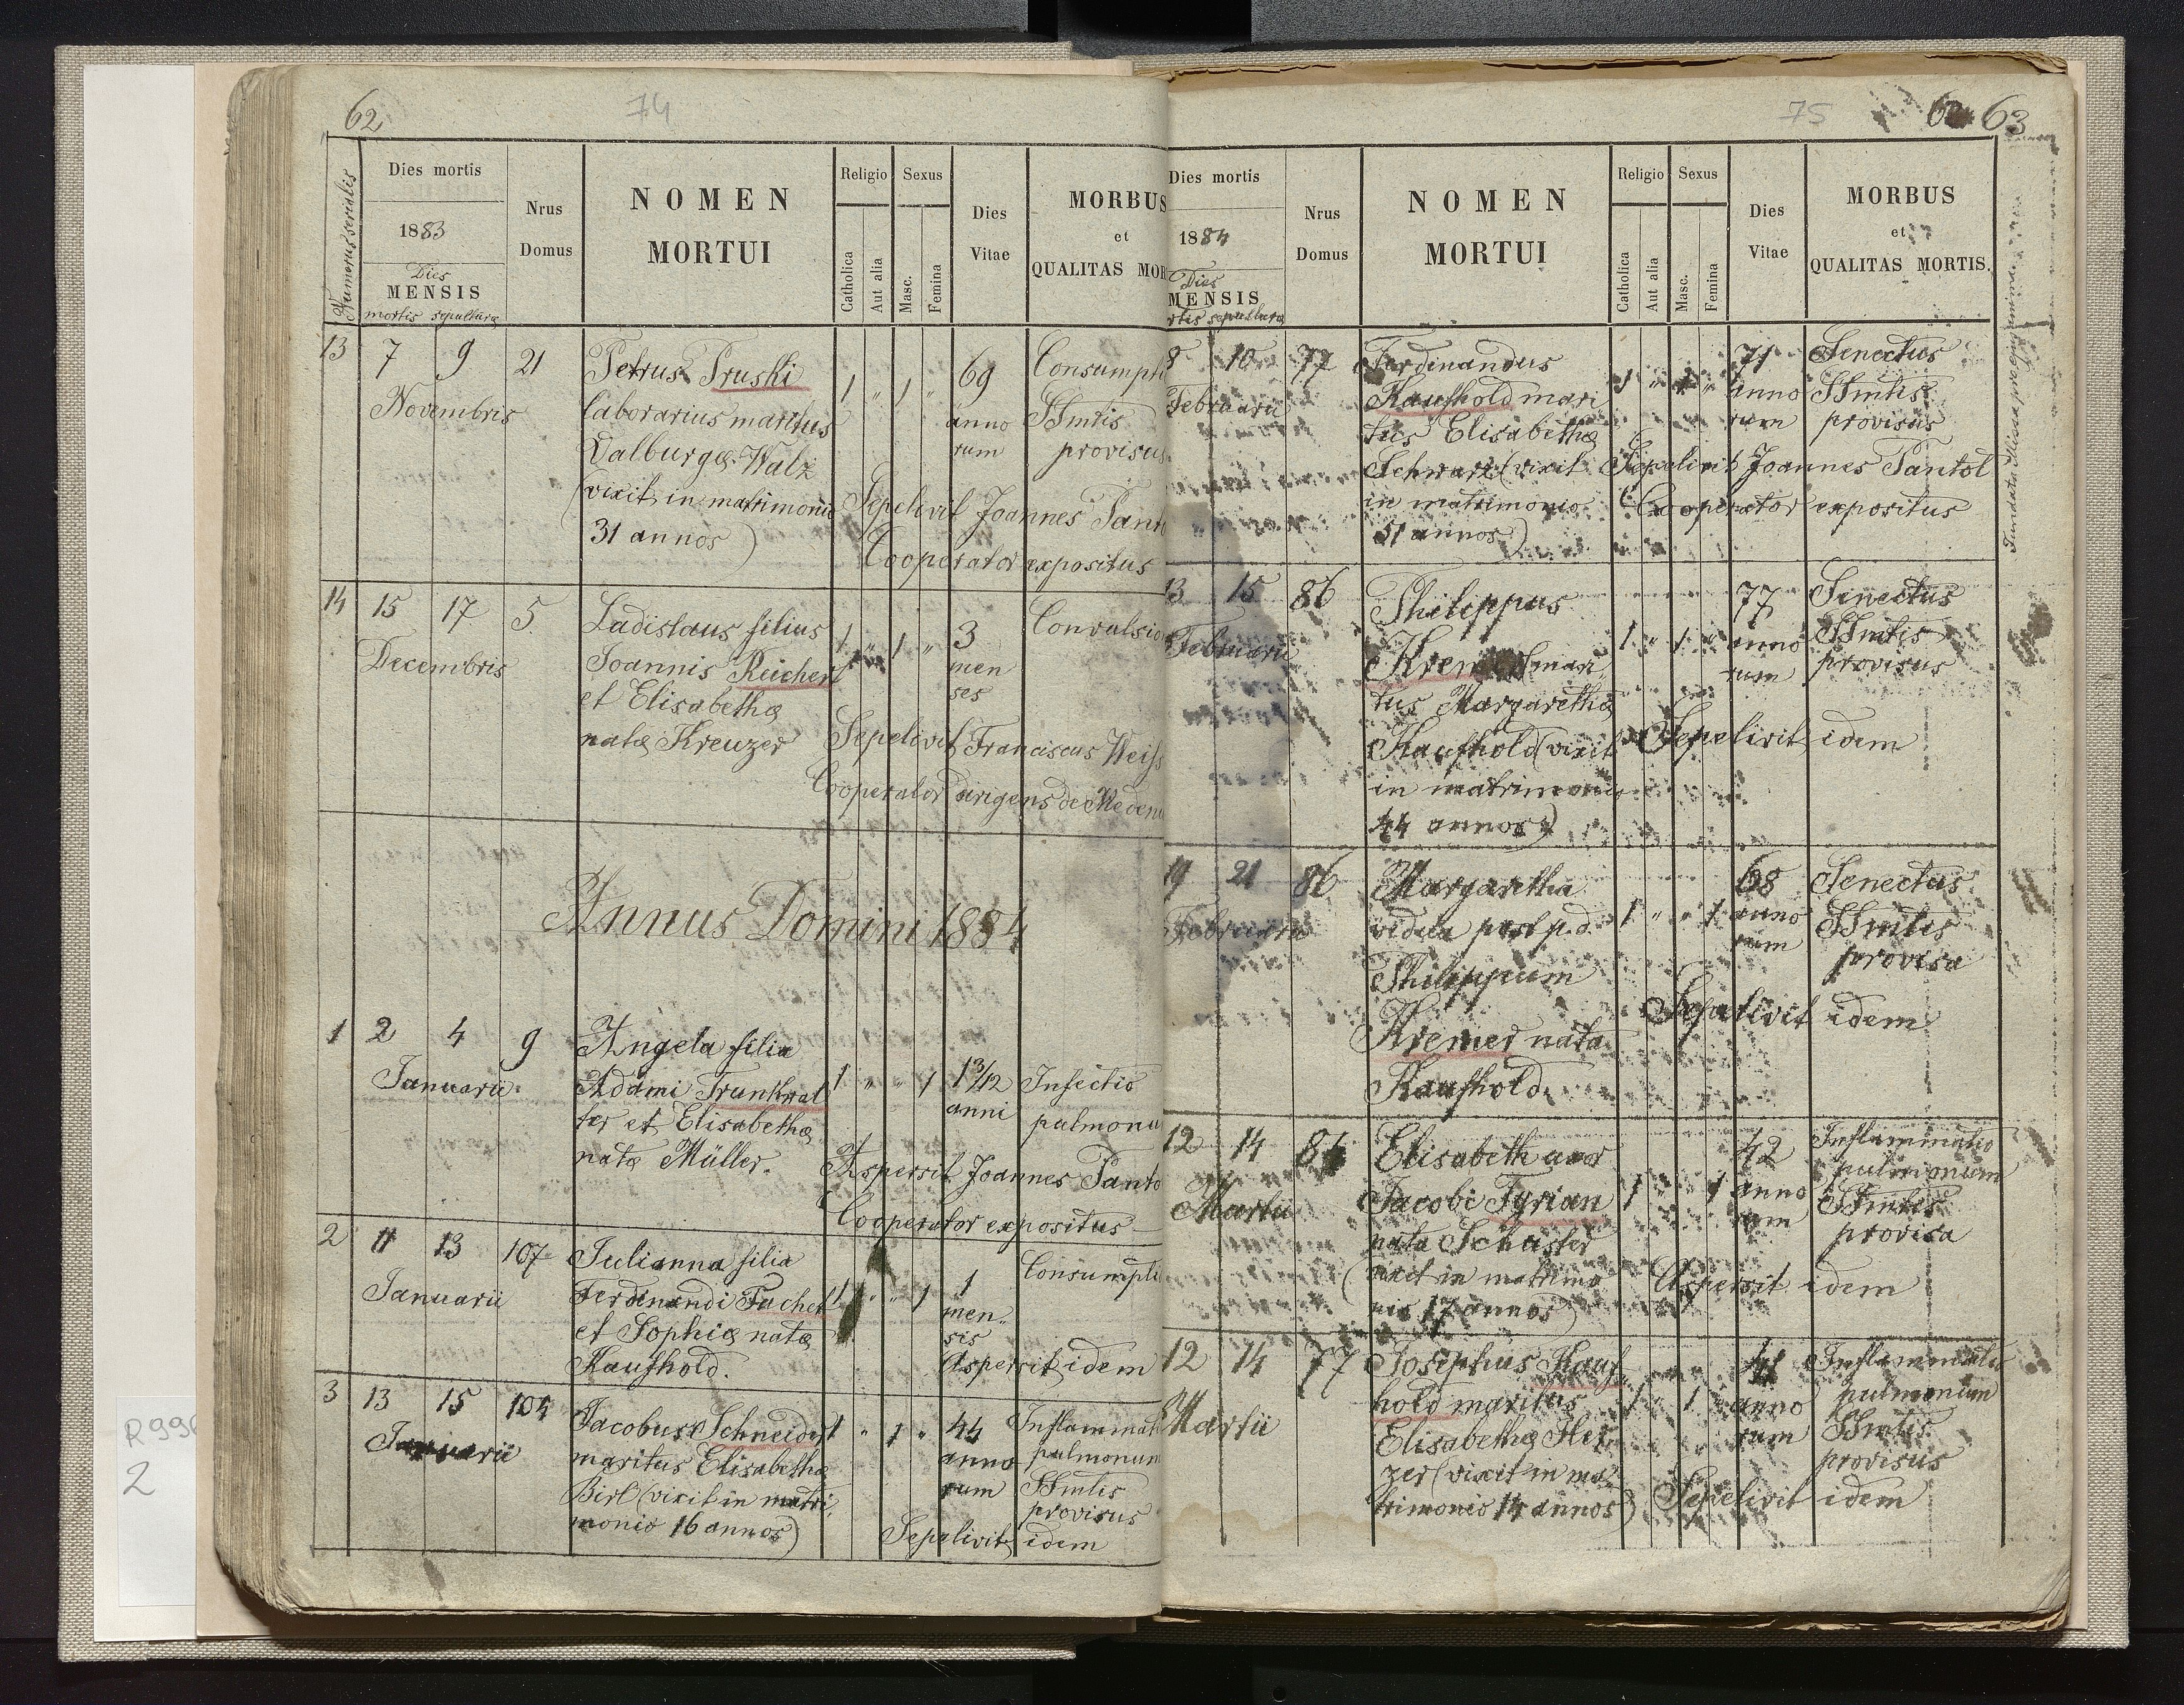 62
74
Numerus serialis
Dies mortis
1883
Dies
MENSIS
mortis sepulturæ
Nrus
Domus
NOMEN
MORTUI
Religio
Catholica
Aut alia
Sexus
Masc.
Femina
Dies
Vitae
MORBUS
et
QUALITAS MOR
13 7 9 21
Novembris
Petrus Pruski
laborarius maritus
Valburgæ Walz
(vixit in matrimonio
31 annos)
1 " 1 "
69
anno
rum
Consumpti
SSmtis
provisus
Sepelivit Joannes Panto
Cooperator expositus
14 15 17 5
Decembris
Ladislaus filius
Joannis Reichert
et Elisabethæ
natæ Kreuzer
1 " 1 "
3
men
ses
Convulsio
Sepelivit Franciscus Weiss
Cooperator dirigens de Medeni
Annus Domini 1884
1 2 4 9
Januarii
Angela filia
Adami Trunkwal
ter et Elisabethæ
natæ Müller.
1 " " 1
1 3/12
anni
Infectio
pulmonu
Aspersit Joannes Panto
Cooperator expositus
2 11 13 107
Januarii
Julianna filia
Ferdinandi Puchert
et Sophiæ natæ
Kaufhold.
1 " " 1
1
men
sis
Consumpti
Aspersit idem
3 13 15 104
Januarii
Jacobus Schneider
maritus Elisabethæ
Birl (vixit in matri
monio 16 annos)
1 " 1 "
44
anno
rum
Inflammati
pulmonum
SSmtis
provisus
Sepelivit idem
75
63
Dies mortis
1884
Dies
MENSIS
rtis sepulturæ
Nrus
Domus
NOMEN
MORTUI
Religio
Catholica
Aut alia
Sexus
Masc.
Femina
Dies
Vitae
MORBUS
et
QUALITAS MORTIS.
8 10 77
Februarii
Ferdinandus
Kaufhold mari
tus Elisabethæ
Schwarz (vixit
in matrimonio
51 annos)
1 " 1 "
71
anno
rum
Senectus
SSmtis
provisus
Sepelivit Joannes Pantol
Cooperator expositus
Fundata Missa pro
13 15 86
Februarii
Philippus
Kremer mari
tus Margarethæ
Kaufhold (vixit
in matrimonio
44 annos)
1 " 1 "
77
anno
rum
Senectus
SSmtis
provisus
Sepelivit idem
19 21 86
Februarii
Margaretha
vidua post p. d.
Philippum
Kremer nata
Kaufhold.
1 " " 1
68
anno
rum
Senectus
SSmtis
provisa
Sepelivit idem
12 14 84
Martii
Elisabeth uxor
Jacobi Tyrian
nata Schuster
(vixit in matrimo
nio 17 annos)
1 " " 1
42
anno
rum
Inflammatio
pulmonum
SSmtis
provisa
Aspersit idem
12 14 77
Martii
Josephus Kauf
hold maritus
Elisabethæ Hei
zer (vixit in ma
trimonio 14 annos)
1 " 1 "
41
anno
rum
Inflammatio
pulmonum
SSmtis
provisus
Sepelivit idem
R996
2